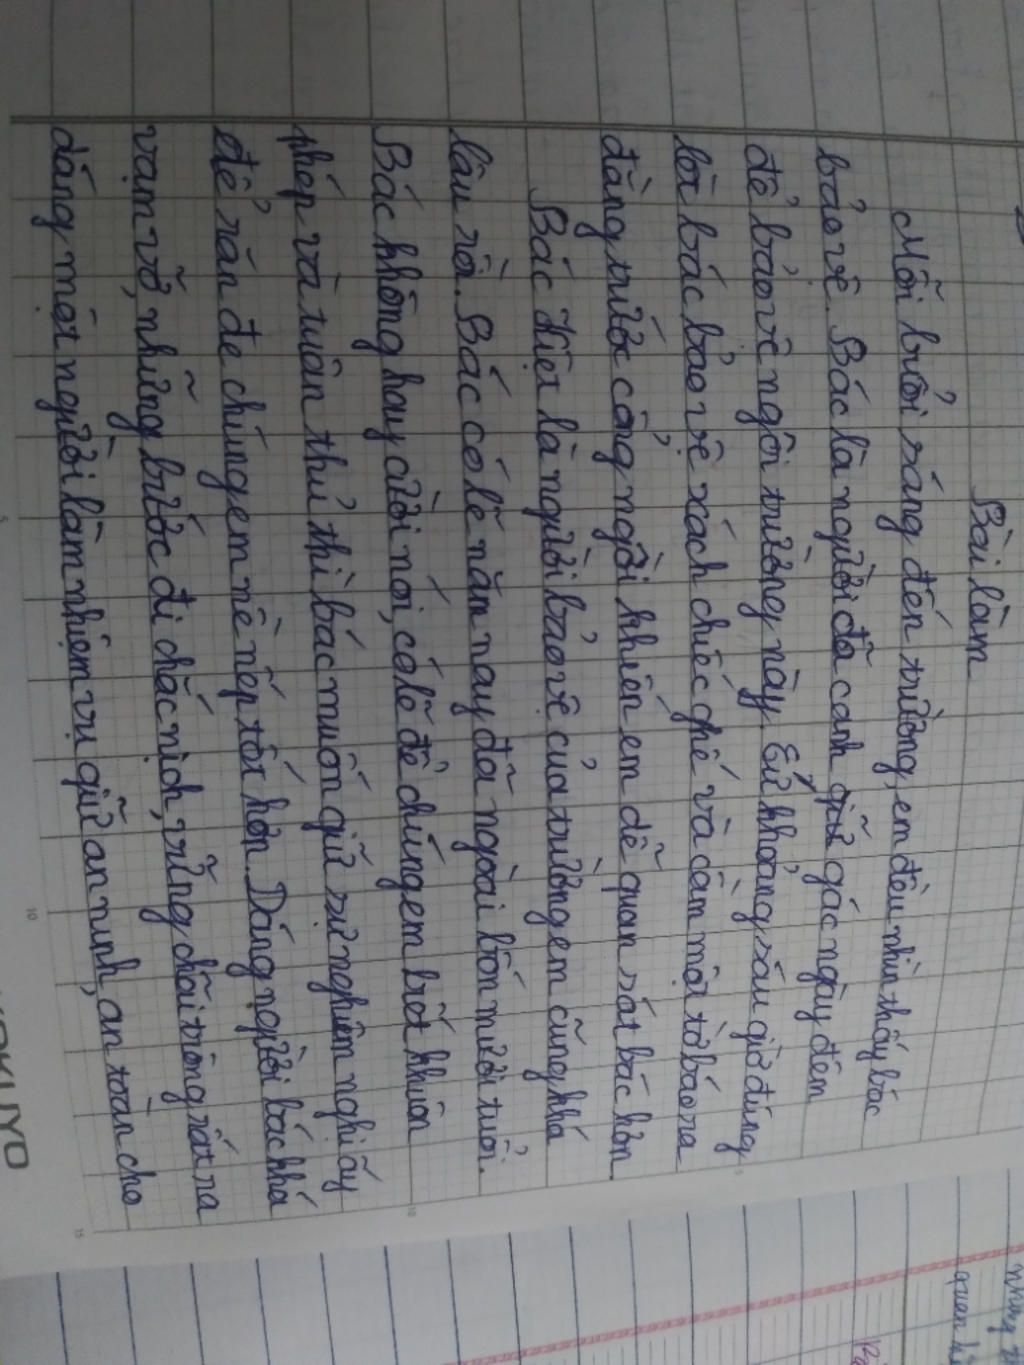 Bài làm
Mỗi buổi sáng đến trường, em đều nhìn thấy bác
bảo vệ. Bác là người đã canh giữ gác ngày đêm
để bảo vệ ngôi trường này. Cứ khoảng sáu giờ đúng
là bác bảo vệ xách chiếc ghế và cầm một tờ báo ra
đằng trước cổng ngồi khiến em dễ quan sát bác hơn
Bác Kiệt là người bảo vệ của trường em cũng khá
lâu rồi. Bác có lẽ năm nay đã ngoài bốn mươi tuổi.
Bác không hay cười nói, có lẽ để chúng em biết khuôn
phép và tuân thủ thì bác muốn giữ sự nghiêm nghị ấy
để răn đe chúng em nề nếp tốt hơn. Dáng người bác khá
vạm vỡ, những bước đi chắc nịch, vững chãi trông rất ra
dáng một người làm nhiệm vụ giữ an ninh, an toàn cho
KOKUYO
5
10
15
5
10
quen